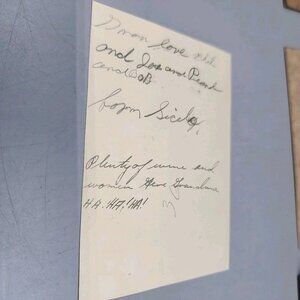 love
and Joe and Pearl
and Bob
form Sicily,
Plenty of wine and
women Here Grandma
HA. HA! HA!